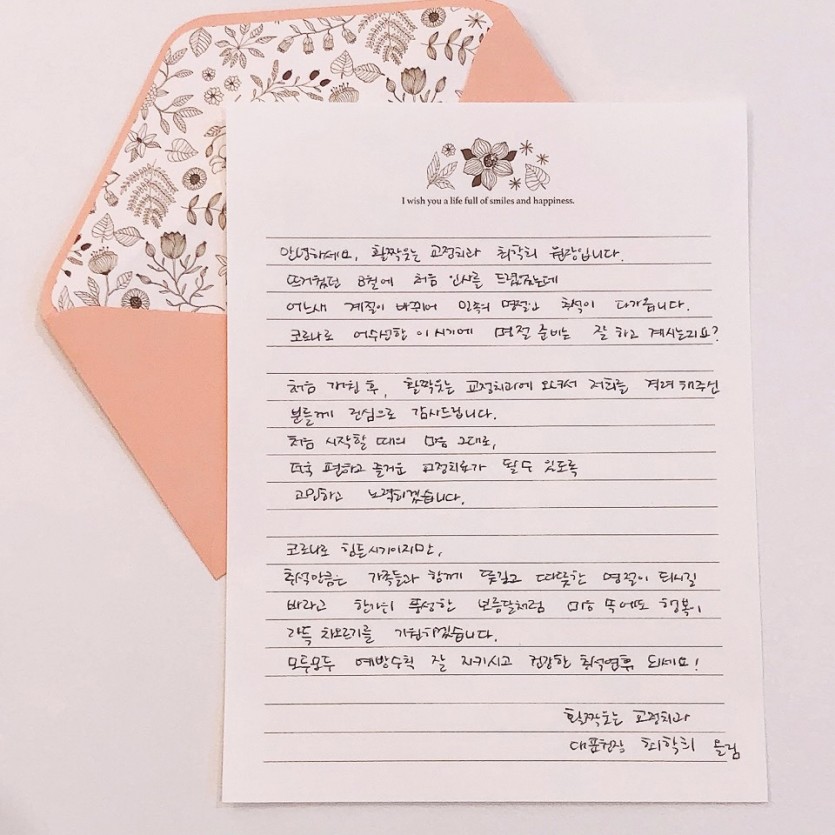 I wish you a life full of smiles and happiness.
안녕하세요, 활짝웃는 교정치과 최학희 원장입니다.
뜨거웠던 8월에 처음 인사를 드렸었는데
어느새 계절이 바뀌어 민족의 명절인 추석이 다가옵니다.
코로나로 어수선한 이 시기에 명절 준비는 잘 하고 계시는지요?
처음 개원 후, 활짝웃는 교정치과에 오셔서 저희를 격려해주신
분들께 진심으로 감사드립니다.
처음 시작할 때의 마음 그대로,
더욱 편하고 즐거운 교정치료가 될 수 있도록
고민하고 노력하겠습니다.
코로나로 힘든시기이지만,
추석만큼은 가족들과 함께 뜻깊고 따뜻한 명절이 되시길
바라고 한가위 풍성한 보름달처럼 마음 속에도 행복이
가득 차오르기를 기원하겠습니다.
모두모두 예방수칙 잘 지키시고 건강한 추석연휴 되세요!
활짝웃는 교정치과
대표원장 최학희 올림